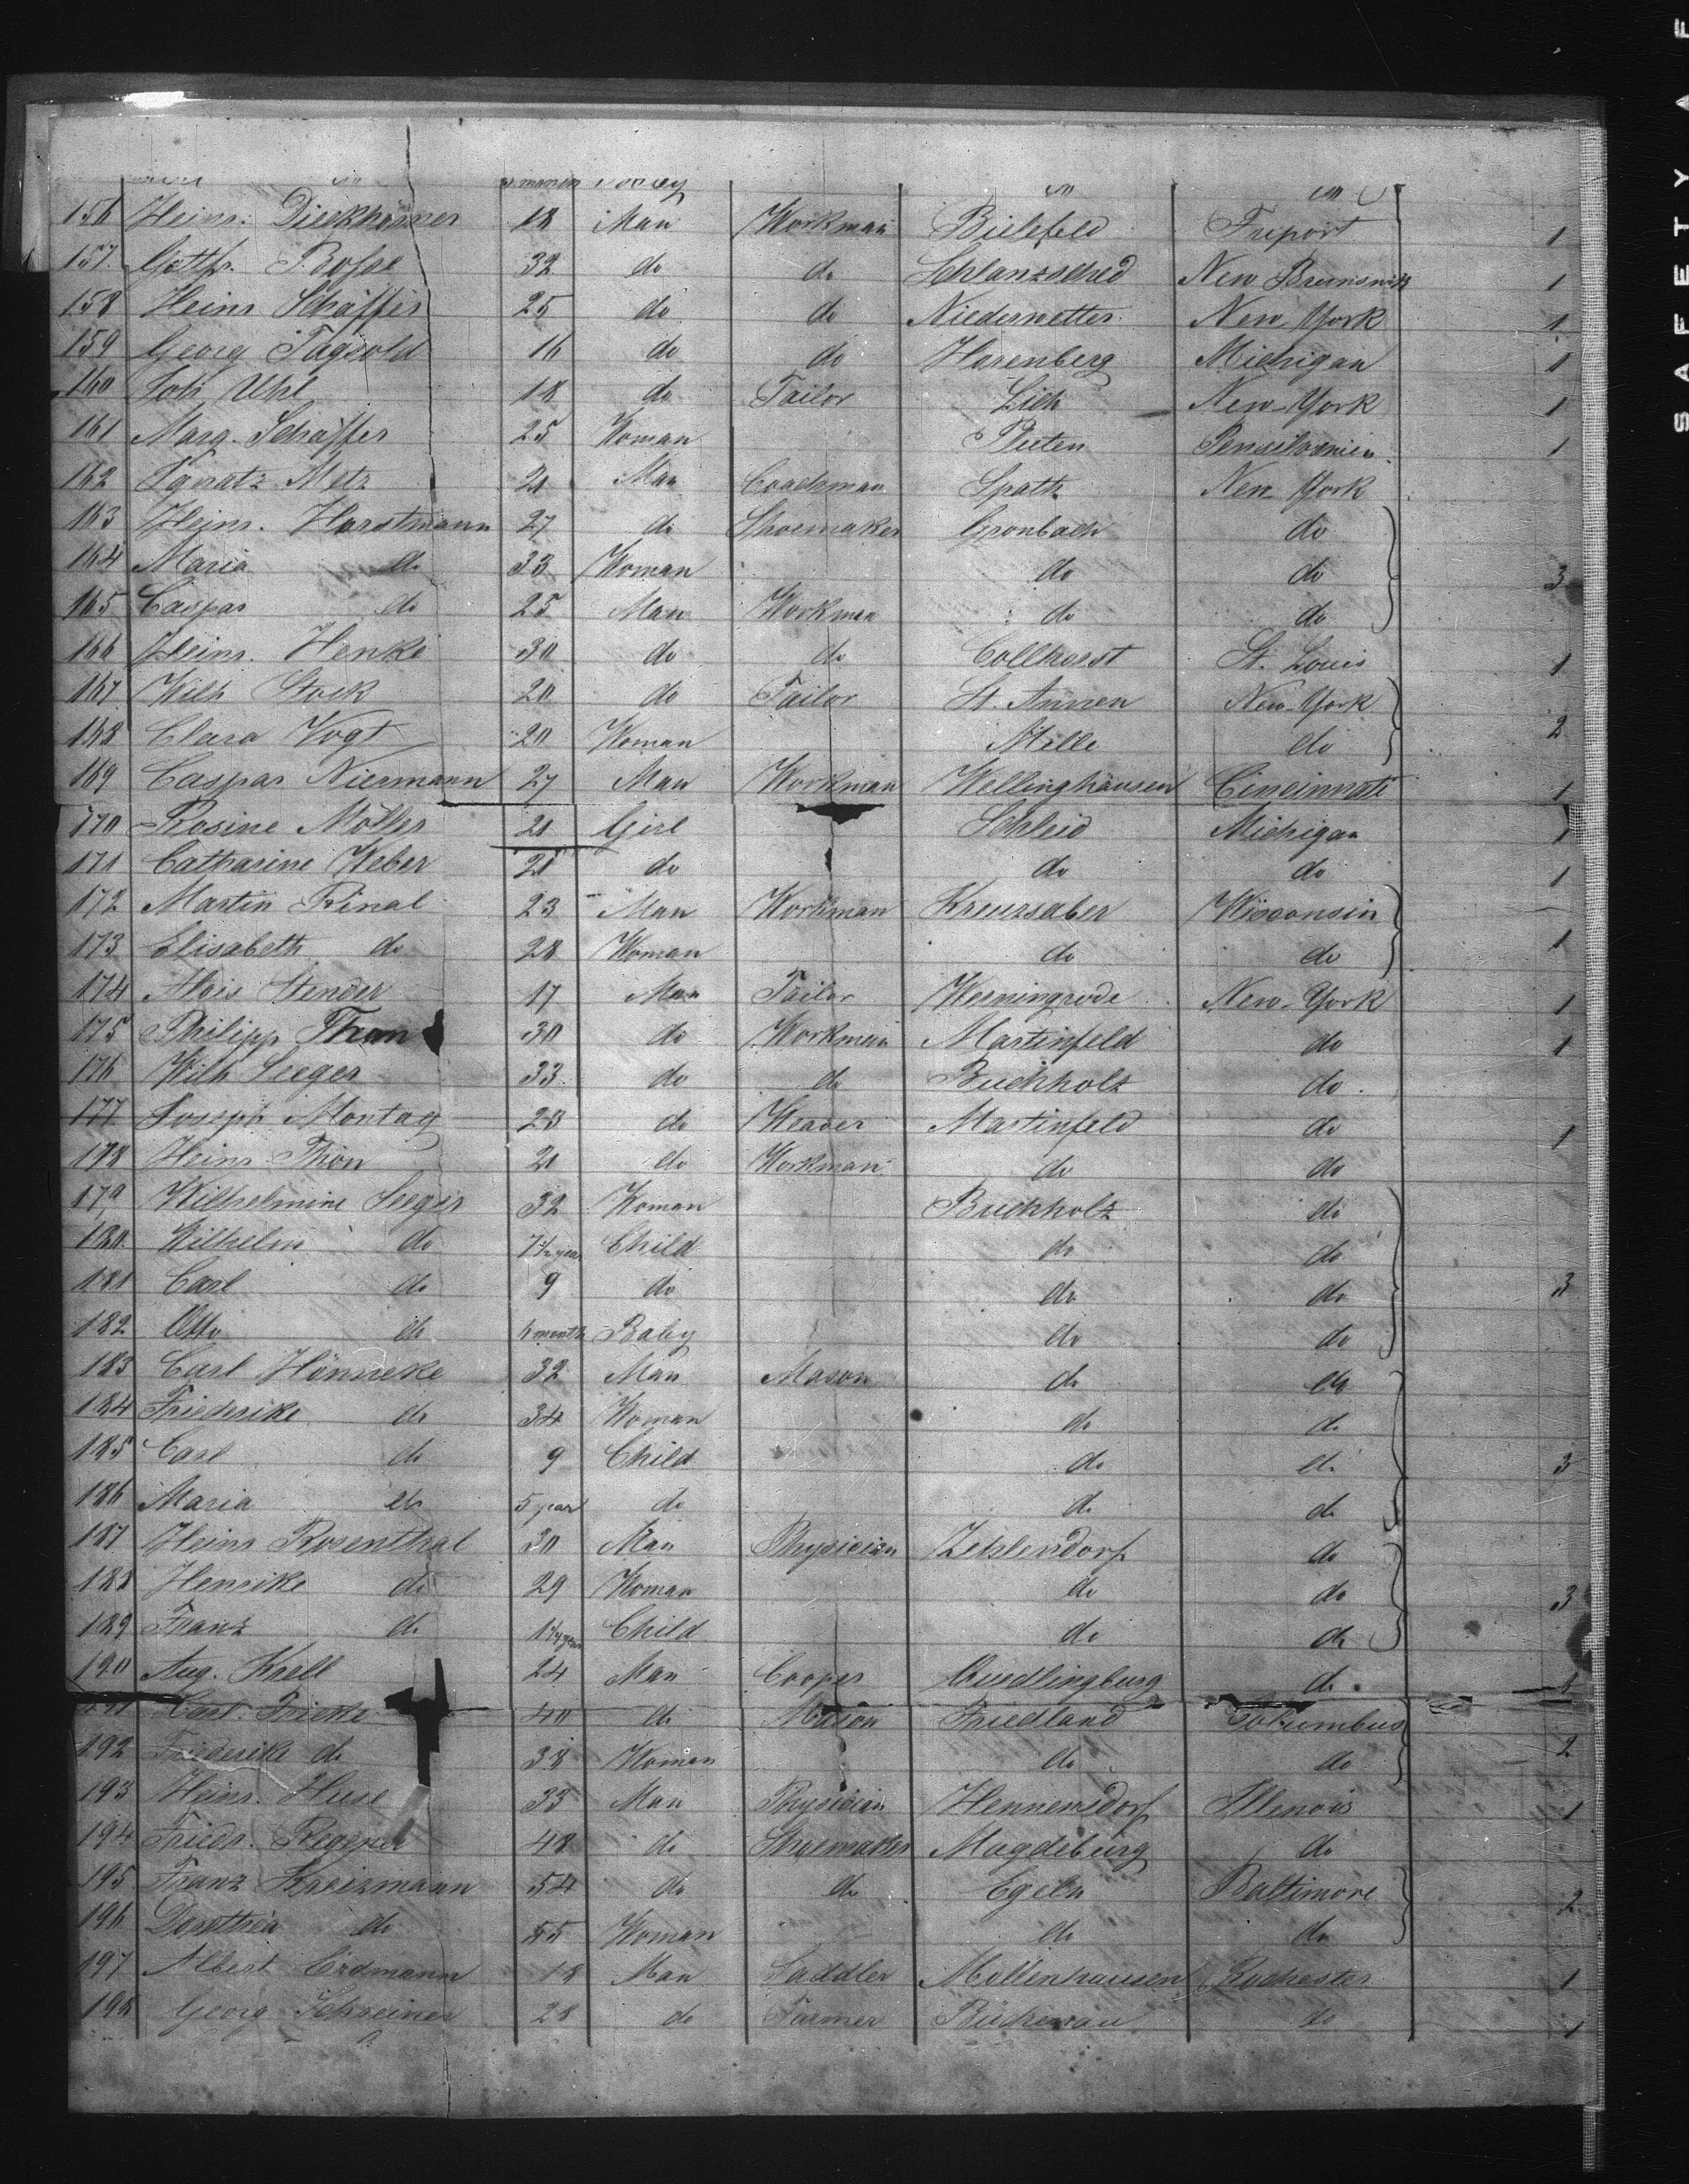 156 Heinr. Dieckhörner 18 Man Workman Bielefeld Freport 1
157 Gotth. Bosse 32 do do Schlanzschied New Brunswik 1
158 Heinr Schäffer 25 do do Niedernetter New York 1
159 Georg 16 do do Harenberg Michigan 1
160 Joh Uhl 18 do Tailor Lich New York 1
161 Marg. Schäffer 25 Woman Pensilvanien 1
162 Ignatz Metz 21 Man Coachman Spath New York
163 Heinr. Horstmann 27 do Shoemaker Gronbach do
164 Maria do 33 Woman do do 3
165 Caspar do 25 Man Workman do do
166 Heinr. Henke 30 do do Collhorst St. Louis 1
167 Wilh Stock 20 do Tailor St. Annen New-York
168 Clara Vogt 20 Woman Melle do 2
169 Caspar Niermann 27 Man Workman Wellinghausen Cincinnati 1
170 Rosine Möller 21 Girl Schleid Michigan 1
171 Catharine Weber 21 do do do 1
172 Martin Final 23 Man Workman Kreuzsaber Wisconsin
173 Elisabeth do 28 Woman do do 1
174 Alois Stender 17 Man Tailor Werningrode New-York 1
175 Philipp Thon 30 do Workman Martinfeld do 1
176 Wilh Seeger 33 do do Buchholz do
177 Joseph Montag 28 do Weaver Martinfeld do 1
178 Heinr Thon 21 do Workman do do
179 Wilhelmine Seeger 32 Woman Buchholz do
180 Wilhelm do 7 1/2 year Child do do
181 Carl do 9 do do do 3
182 Otto do 6 month Baby do do
183 Carl Hönneke 32 Man Mason do do
184 Friederike do 34 Woman do do
185 Carl do 9 Child do do 3
186 Maria do 5 year do do do
187 Heinr Rosenthal 30 Man Physician Zehlendorf do
188 Henrike do 29 Woman do do 3
189 Franz do 1 1/4 year Child do do
190 Aug. Krell 24 Man Cooper Quedlingburg do 1
191 Carl. Fricke 40 do Mason Friedland Columbus
192 Friederike do 38 Woman do do 2
193 Heinr. Huse 33 Man Physician Hennersdorf Illenois 1
194 Friedr. 48 do Shoemaker Magdeburg do
195 Franz Kreizmann 54 do do Egeln Baltimore
196 Dorothea do 55 Woman do do 2
197 Albert Erdmann 18 Man Saddler Mollenhausen Rochester 1
198 Georg Schreiner 28 do Farmer do 1
SAFETY